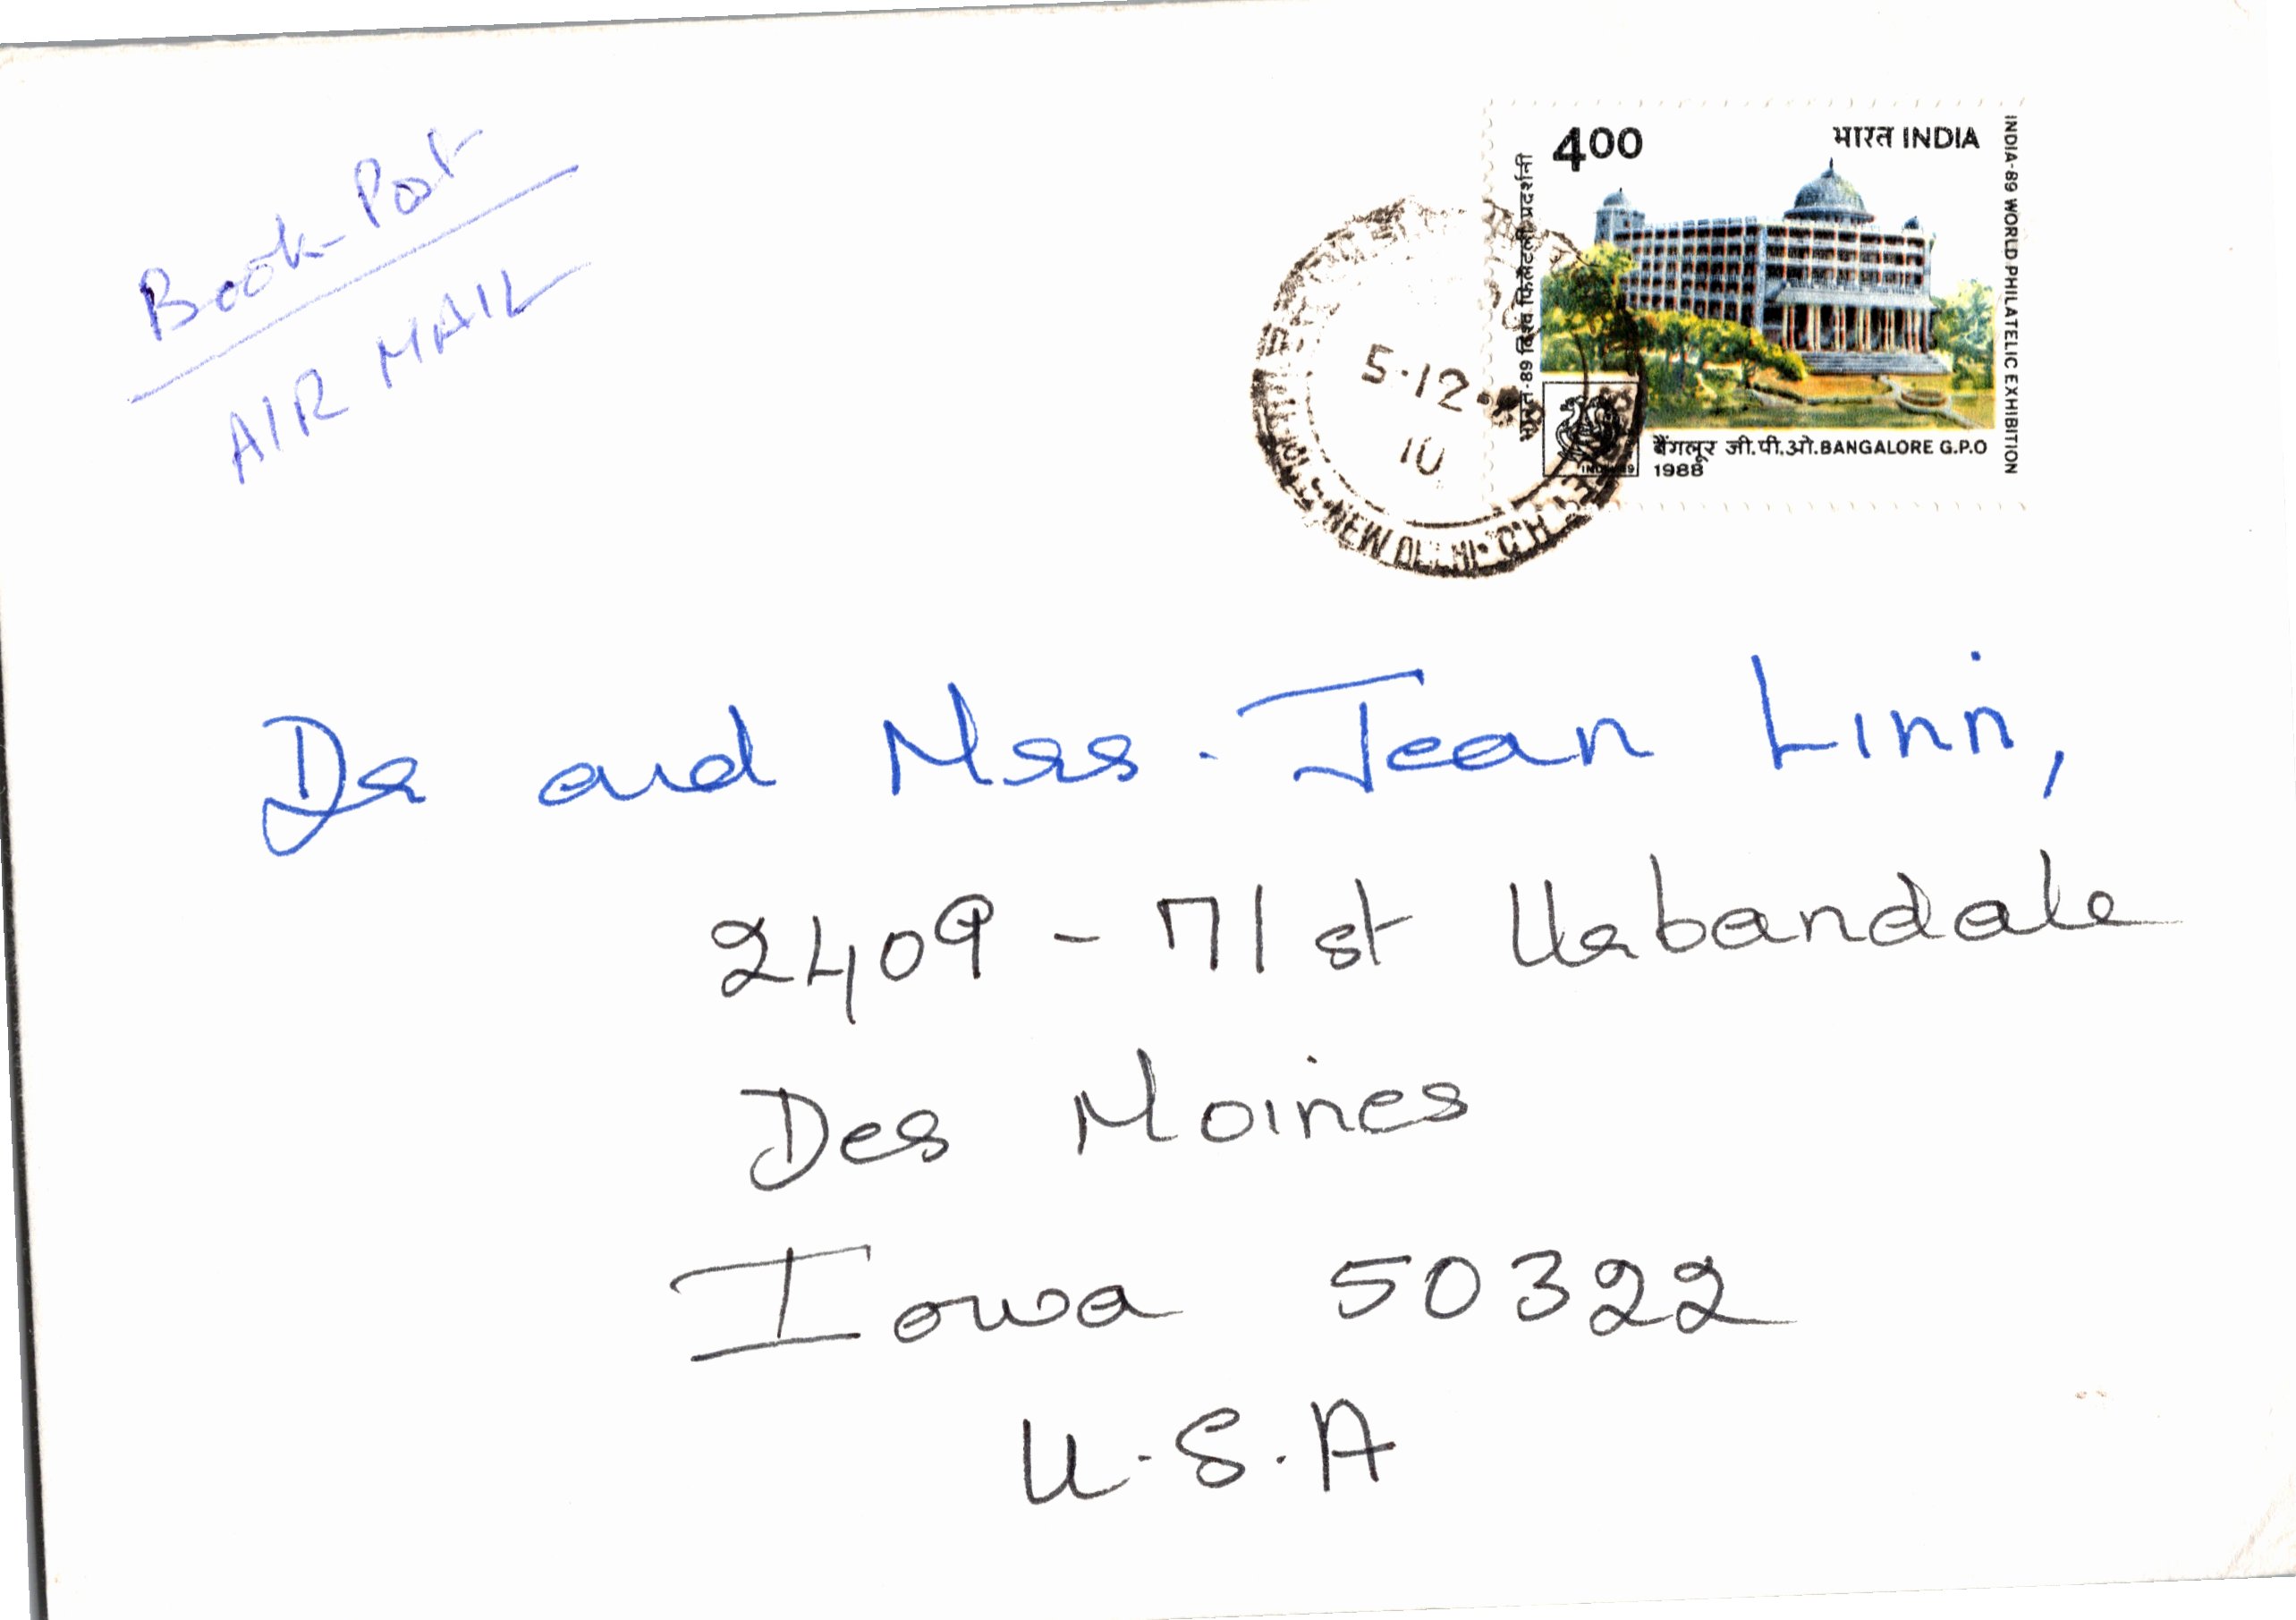 Book-Post
AIR MAIL
400
भारत INDIA
भारत-89 विश्व फिलैटली प्रदर्शनी
INDIA-89 WORLD PHILATELIC EXHIBITION
बैंगलूर जी.पी.ओ. BANGALORE G.P.O
1988
5-12
10
NEW DELHI
Dr and Mrs. Jean Linn,
2409 - 71 st Urbandale
Des Moines
Iowa 50322
U.S.A